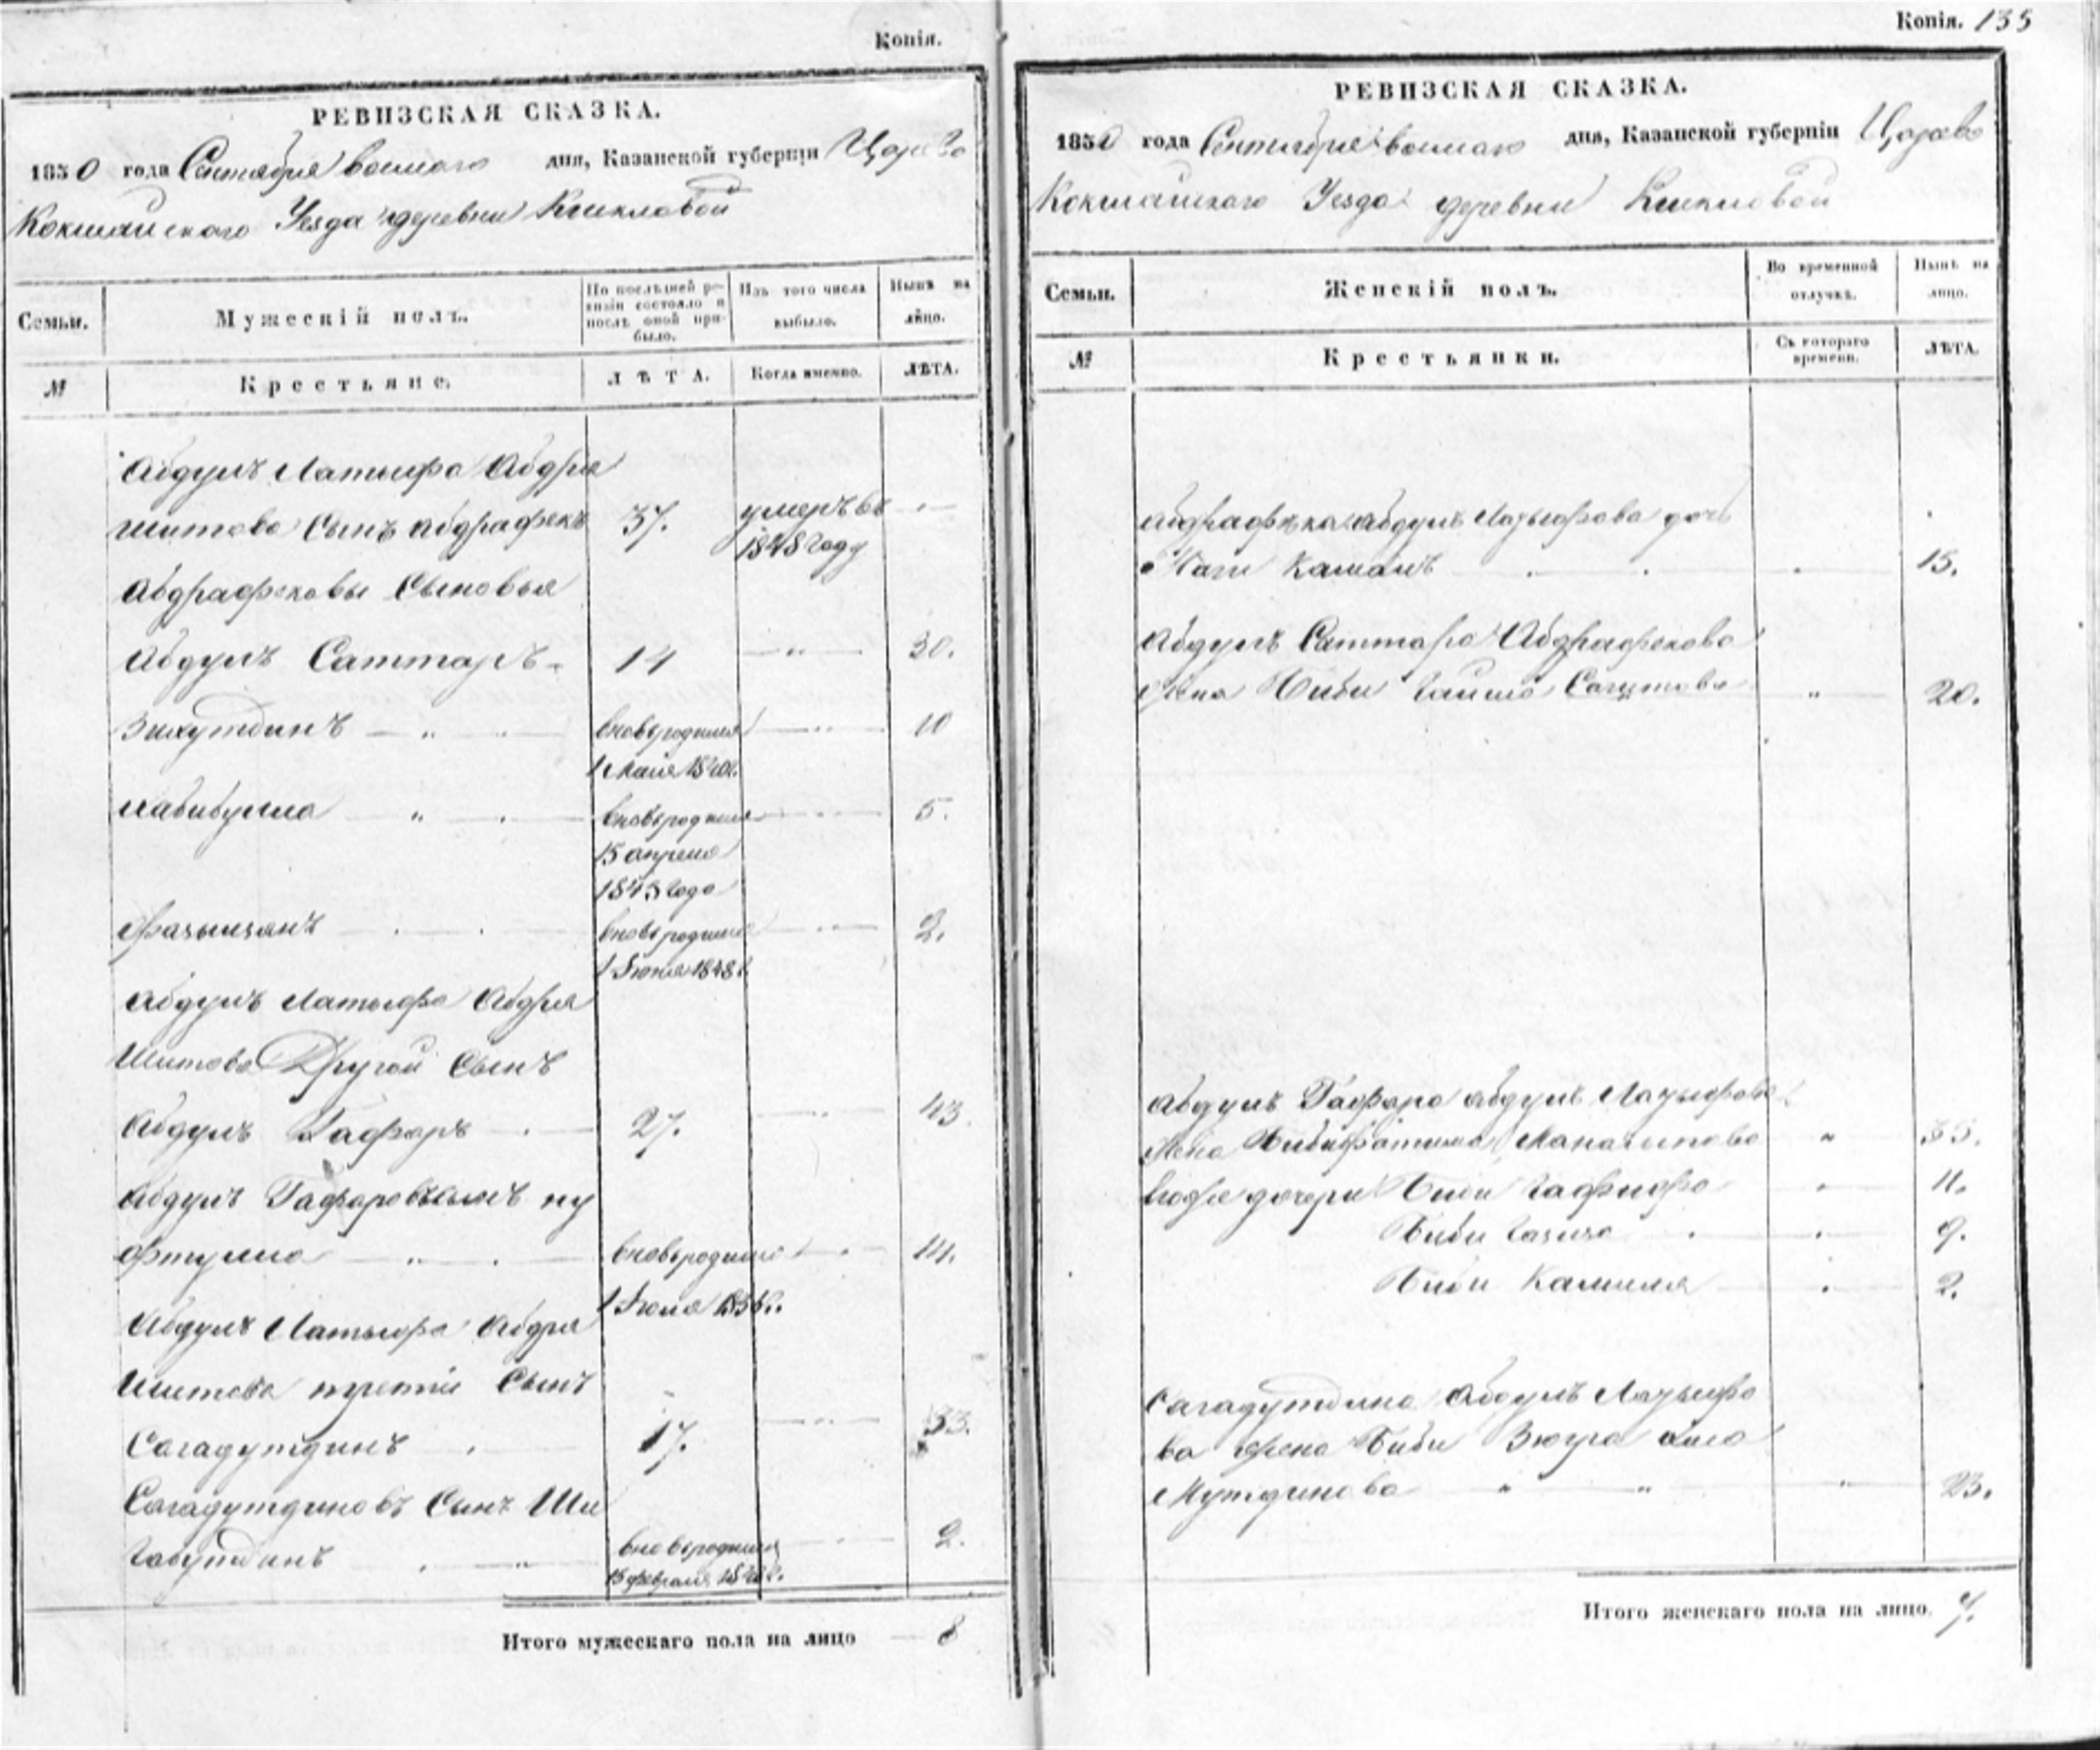 Копія.
РЕВИЗСКАЯ СКАЗКА.
1850 года Сентября восмаго дня, Казанской губерніи Царево
Кокшайскаго Уезда деревни
Семьи.
Мужескій полъ.
По послѣдней ре-
визіи состояло и
послѣ оной при-
было.
Изъ того числа
выбыло.
Нынѣ на
лицо.
№
Крестьяне.
ЛѢТА.
Когда именно.
ЛѢТА.
Абдулъ Латыфа Абдра
шитова Сынъ абдрафекъ 37. умеръ въ
1848 году
Абдрафековы Сыновья
Абдулъ Саттаръ 14 — " — 30.
Зиятдинъ — " — вновьродился — " — 10
1 Маія 1840г.
Хабибулла — " — вновьродился — " — 5.
15 апреля
1845 года
Фазылзянъ вновьродился — " — 2.
1 Июня 1848 г.
Абдулъ Латыфа Абдра
Шитова Другой Сынъ
Абдулъ Гафаръ 27. — " — 43.
Абдулъ Гафаровъ сынъ ну
фтулла — " — вновьродился — " — 14.
1 Июля 1836 г.
Абдулъ Латыфа Абдра
Шитова третій Сынъ
Сагадутдинъ 17. — " — 33.
Сагадутдиновъ Сынъ Ши
габутдинъ — " вновьродился — " — 2.
15 февраля 1848 г.
Итого мужескаго пола на лицо — 8
Копія. 135
РЕВИЗСКАЯ СКАЗКА.
1850 года Сентября восмаго дня, Казанской губерніи Царево
Кокшайскаго Уезда деревни
Семьи.
Женскій полъ.
Во временной
отлучкѣ.
Нынѣ на
лицо.
№
Крестьянки.
Съ котораго
времени.
ЛѢТА.
Абдрафека Абдулъ Латыфова дочь
Камалъ 15.
Абдулъ Саттара Абдрафекова
жена Биби Гайша Сагитова " 20.
Абдулъ Гафара абдулъ Латыфова
Жена Бибифатима " 35.
дочери Биби Гафифа " 11.
Биби Газиза " 9.
Биби Камиля " 2.
Сагадутдина Абдулъ Латыфо
ва жена Биби Зюгра
Мутдинова " " " 23.
Итого женскаго пола на лицо. 7.